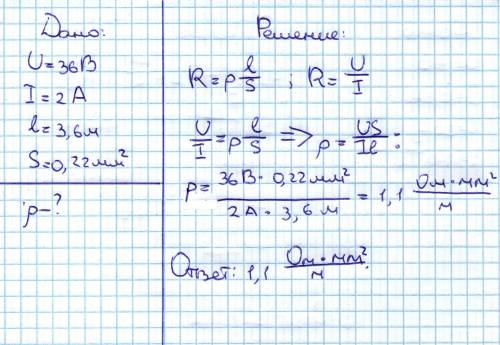 Дано:
U=36В
I=2А
l=3,6м
S=0,22мм²
ρ-?
Решение:
R=ρ l/S ; R=U/I
U/I=ρ l/S => ρ=US/Il:
ρ=36В·0,22мм²/2А·3,6м=1,1 Ом·мм²/м
Ответ: 1,1 Ом·мм²/м.